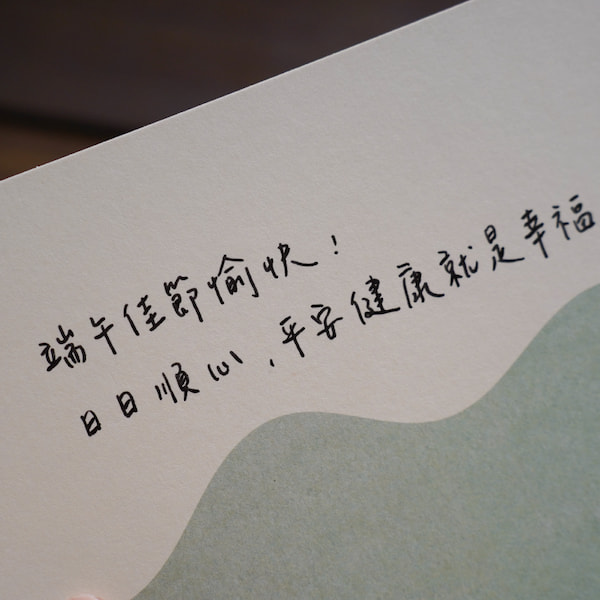 端午佳節愉快！
日日順心，平安健康就是幸福